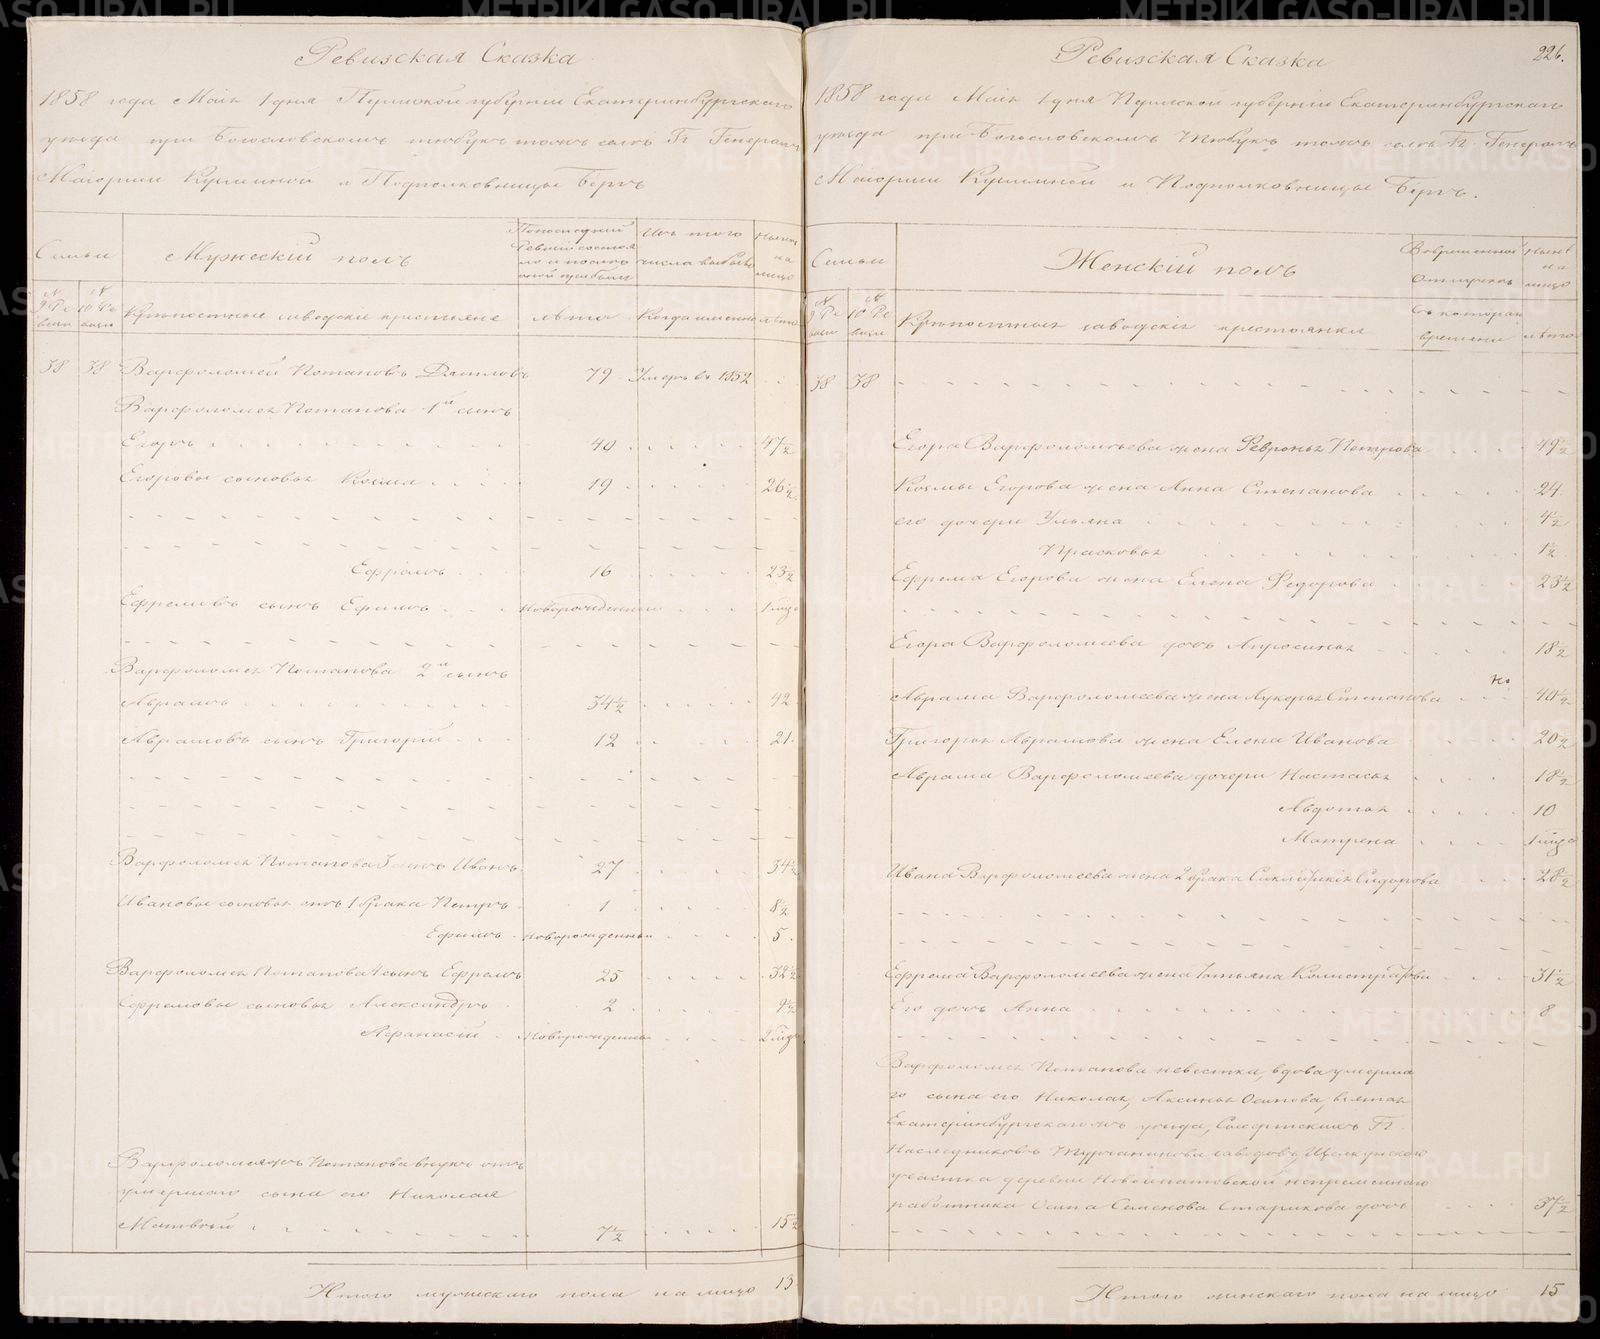 Ревизская Сказка
1858 года Маія 1 дня Пермской губерніи Екатеринбургскаго
уезда при Богословскомъ тюбукъ тожъ селѣ Гг. Генералъ
Маіорши Кузминой и Подполковницы Бергъ
Семьи
Мужескій полъ
По последней ревизіи состояло и после оной прибыло
Изъ того числа выбыло
Ныне на лицо
№ 9 Ревизіи
№ 10 Ревизіи
Крепостные заводскіе крестьяне
лета
Когда именно
лета
38 38 Варфоломей Потаповъ 79 Умеръ въ 1852
Варфоломея Потапова 1й сынъ
Егоръ 40 47½
Егоровы сыновья Козма 19 26½
Ефремъ 16 23½
Ефремовъ сынъ Ефимъ Новорожденный 1 мца
Варфоломея Потапова 2й сынъ
Абрамъ 34½ 42
Абрамовъ сынъ Григорій 12 21
Варфоломея Потапова 3 сынъ Иванъ 27 34½
Ивановы сыновья отъ 1 брака Петръ 1 8½
Ефимъ Новорожденный 5
Варфоломея Потапова 4 сынъ Ефремъ 25 32½
Ефремовы сыновья Александръ 2 9½
Афанасій Новорожденный 2 мца
Потапова внукъ отъ
умершаго сына его Николая
Матвей 7½ 15½
Итого мужескаго пола на лицо 13
Ревизская Сказка
226.
1858 года Маія 1 дня Пермской губерніи Екатеринбургскаго
уезда при Богословскомъ Тюбукъ тожъ селѣ Гг. Генералъ
Маіорши Кузминой и Подполковницы Бергъ.
Семьи
Женскій полъ
Во временной отлучке
Ныне на лицо
№ 9 Ревизіи
№ 10 Ревизіи
Крепостныя заводскія крестьянки
Съ котораго времени
лета
38 38
Егора Варфоломеева жена Февронья Петрова 49½
Козмы Егорова жена Анна Степанова 24
его дочери Ульяна 4½
Прасковья 1½
Ефрема Егорова жена Елена Федорова 23½
Егора Варфоломеева дочь Апросинья 18½
Абрама Варфоломеева жена Лукерья Степанова 40½
Григорья Абрамова жена Елена Иванова 20½
Абрама Варфоломеева дочери Настасья 18½
Авдотья 10
Матрена 1 мца
Ивана Варфоломеева жена 2 брака Сидорова 28½
Ефрема Варфоломеева жена Татьяна Калистратова 31½
Его дочь Анна 8
Варфоломея Потапова невестка, вдова умерша
го сына его Николая, Аксинья Осипова, взятая
Екатеринбургскаго жъ уезда, Сысертскихъ Гг.
Наследниковъ Турчанинова заводовъ, Щелкунскаго
участка деревни непременнаго
работника Осипа Семенова Старикова дочь 37½
Итого женскаго пола на лицо 15
METRIKI.GASO-URAL.RU